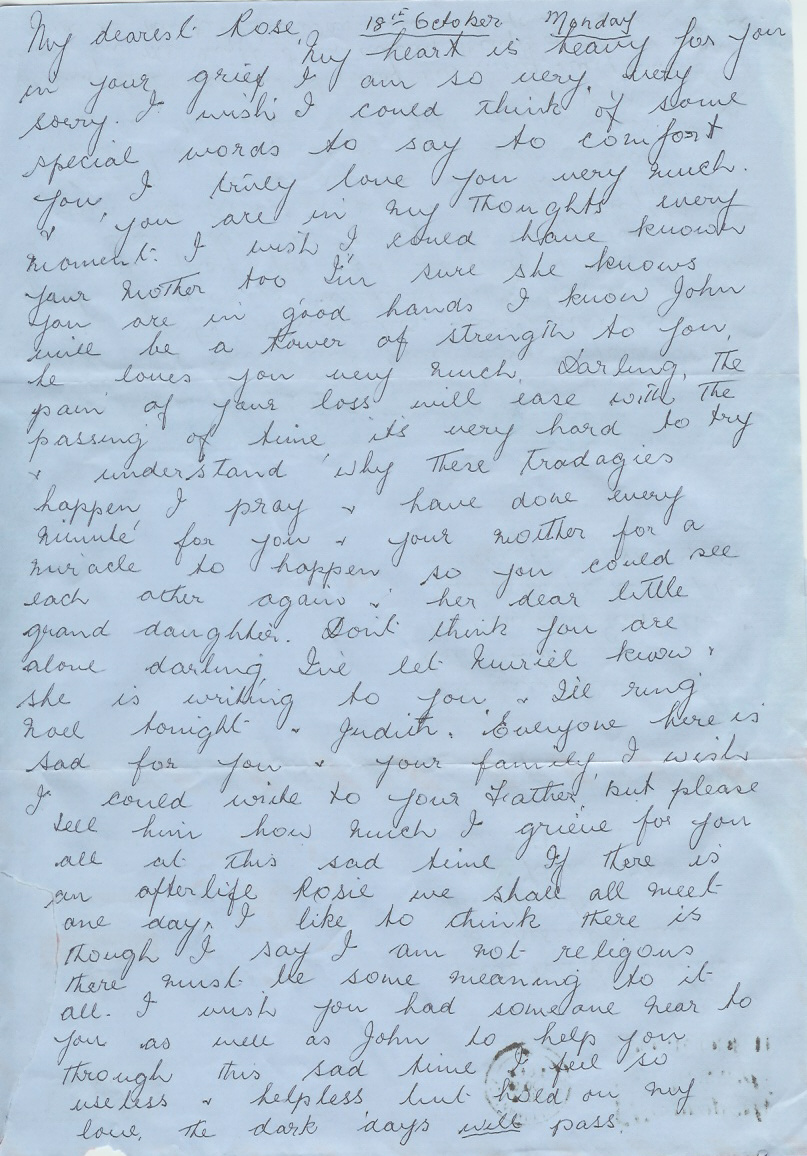 My dearest Rose, 18th October Monday
My heart is heavy for you
in your grief I am so very, very
sorry. I wish I could think of some
special words to say to comfort
you, I truly love you very much.
& you are in my thoughts every
moment. I wish I could have known
your mother too I'm sure she knows
you are in good hands I know John
will be a tower of strength to you,
he loves you very much. Darling, the
pain of your loss will ease with the
passing of time its very hard to try
& understand why these tradagies
happen I pray & have done every
minute for you & your mother for a
miracle to happen so you could see
each other again & her dear little
grand daughter. Don't think you are
alone darling, I've let Muriel know &
she is writing to you & I'll ring
Noel tonight & Judith. Everyone here is
sad for you & your family, I wish
I could write to your Father, but please
tell him how much I grieve for you
all at this sad time If there is
an afterlife Rosie we shall all meet
one day, I like to think there is
though I say I am not religous
there must be some meaning to it
all. I wish you had someone near to
you as well as John to help you
through this sad time I feel so
useless & helpless but hold on my
love, the dark days will pass.